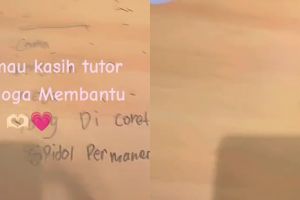 mau kasih tutor
oga Membantu
🫶🏻💗
Di coret
Pidol Permanen